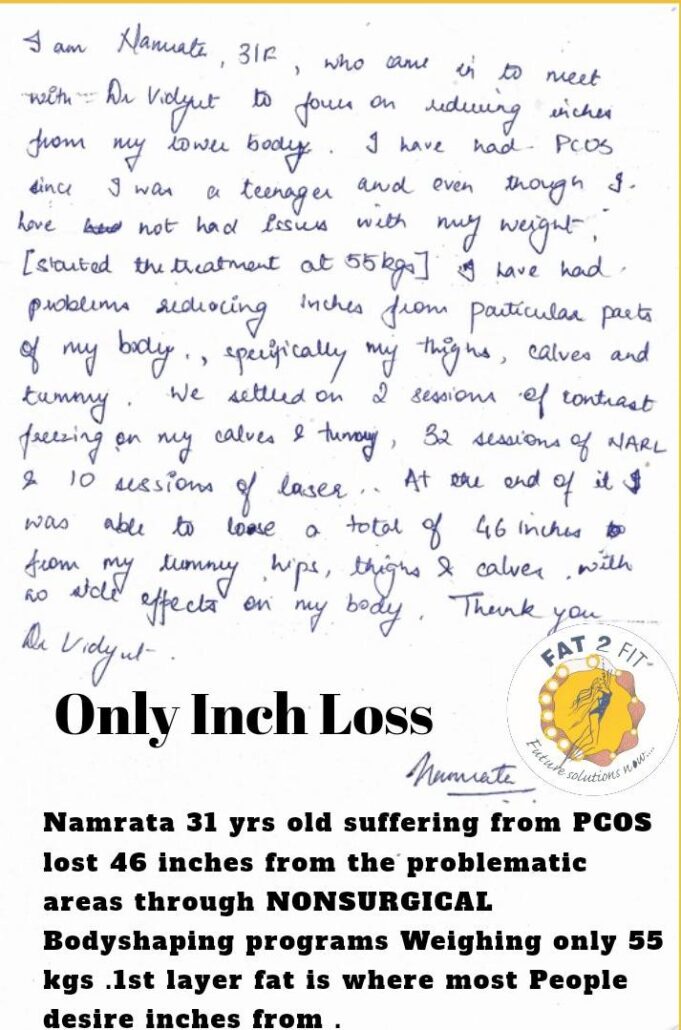 I am Namrata, 31F, who came in to meet
with Dr Vidyut to focus on reducing inches
from my lower body. I have had PCOS
since I was a teenager and even though I
have not had issues with my weight,
[started the treatment at 55kgs] I have had
problems reducing inches from particular parts
of my body., specifically my thighs, calves and
tummy. We settled on 2 sessions of contrast
freezing on my calves & tummy, 32 sessions of NARL
& 10 sessions of laser.. At the end of it I
was able to loose a total of 46 inches
from my tummy, hips, thighs & calves, with
no side effects on my body. Thank you
Dr Vidyut.
FAT 2 FIT
Future solutions now...
Only Inch Loss
Namrata
Namrata 31 yrs old suffering from PCOS
lost 46 inches from the problematic
areas through NONSURGICAL
Bodyshaping programs Weighing only 55
kgs .1st layer fat is where most People
desire inches from .